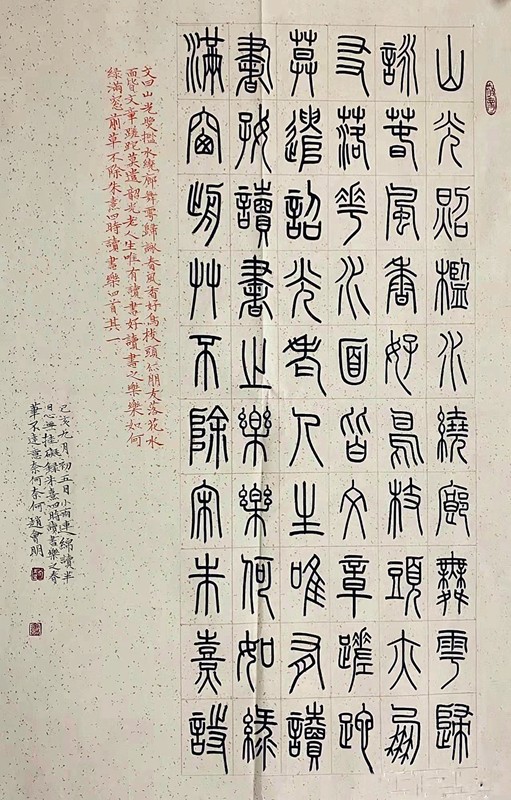 山光照檻水繞廊舞雩歸
詠春風香好鳥枝頭亦朋
友落花水面皆文章蹉跎
莫遣韶光老人生唯有讀
書好讀書之樂樂何如綠
滿窗前草不除宋朱熹詩
文曰山光照檻水繞廊舞雩歸詠春風香好鳥枝頭亦朋友落花水
面皆文章蹉跎莫遣韶光老人生唯有讀書好讀書之樂樂如何
綠滿窗前草不除朱熹四時讀書樂四首其一
己亥九月初五日小雨連綿讀半
日心無挂礙錄朱熹四時讀書樂之春
筆不達意奈何奈何趙會明